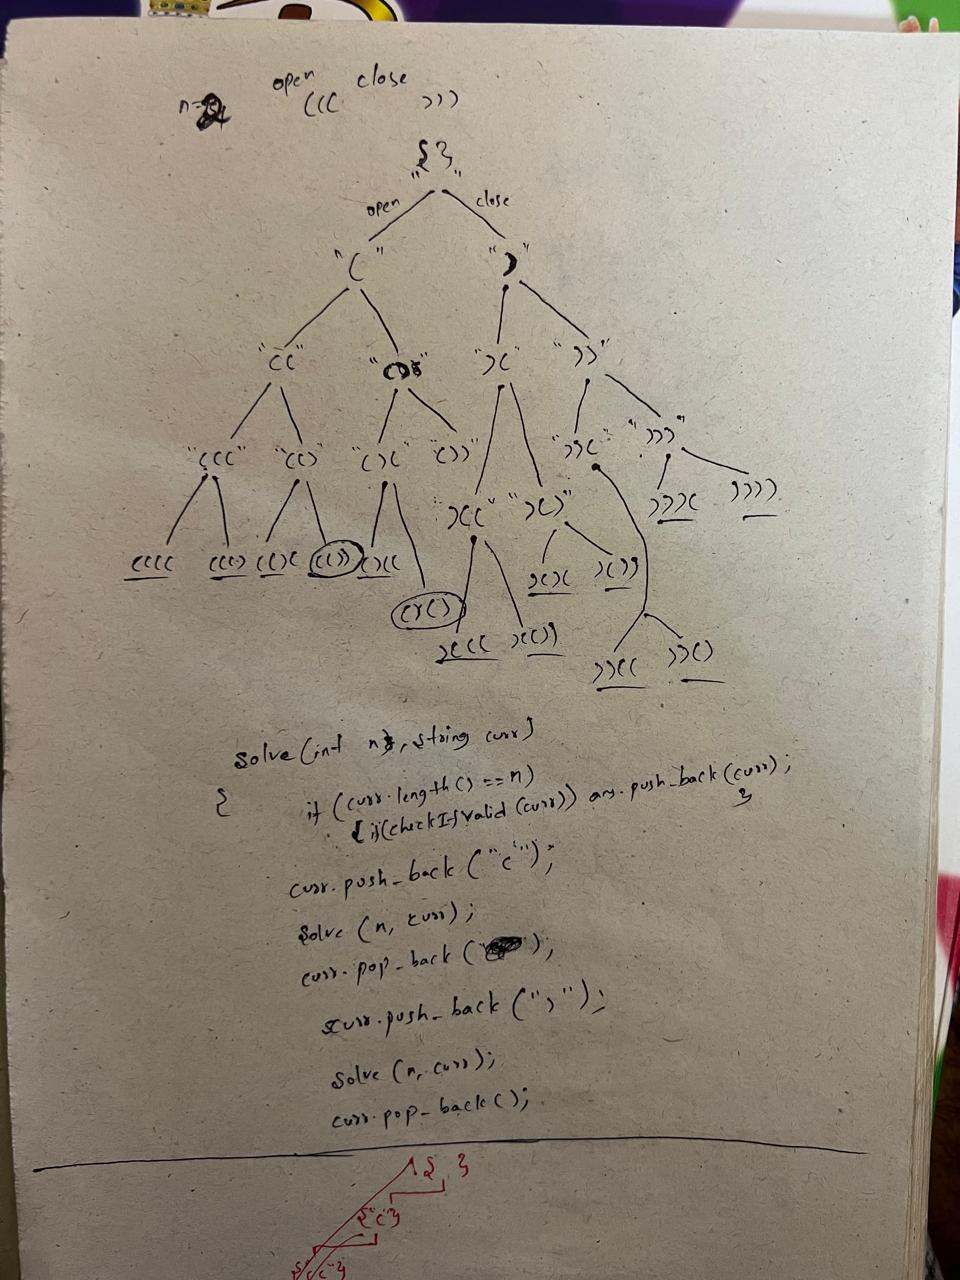 open close
n=
((( )))
"{ }"
open close
"(" ")"
"((" ")(" "))"
"(((" "(()" "()(" "())" "))(" ")))"
")((" ")()"
)))( ))))
(((( ((() (()( (()) ()(( )()( )())
()()
)((( )(()
))(( ))()
solve(int n, string curr)
{ if (curr.length() == n)
{if(checkIfValid(curr)) ans.push_back(curr);
}
curr.push_back("(");
solve(n, curr);
curr.pop_back( );
curr.push_back(")");
solve(n, curr);
curr.pop_back();
{ }
{"("}